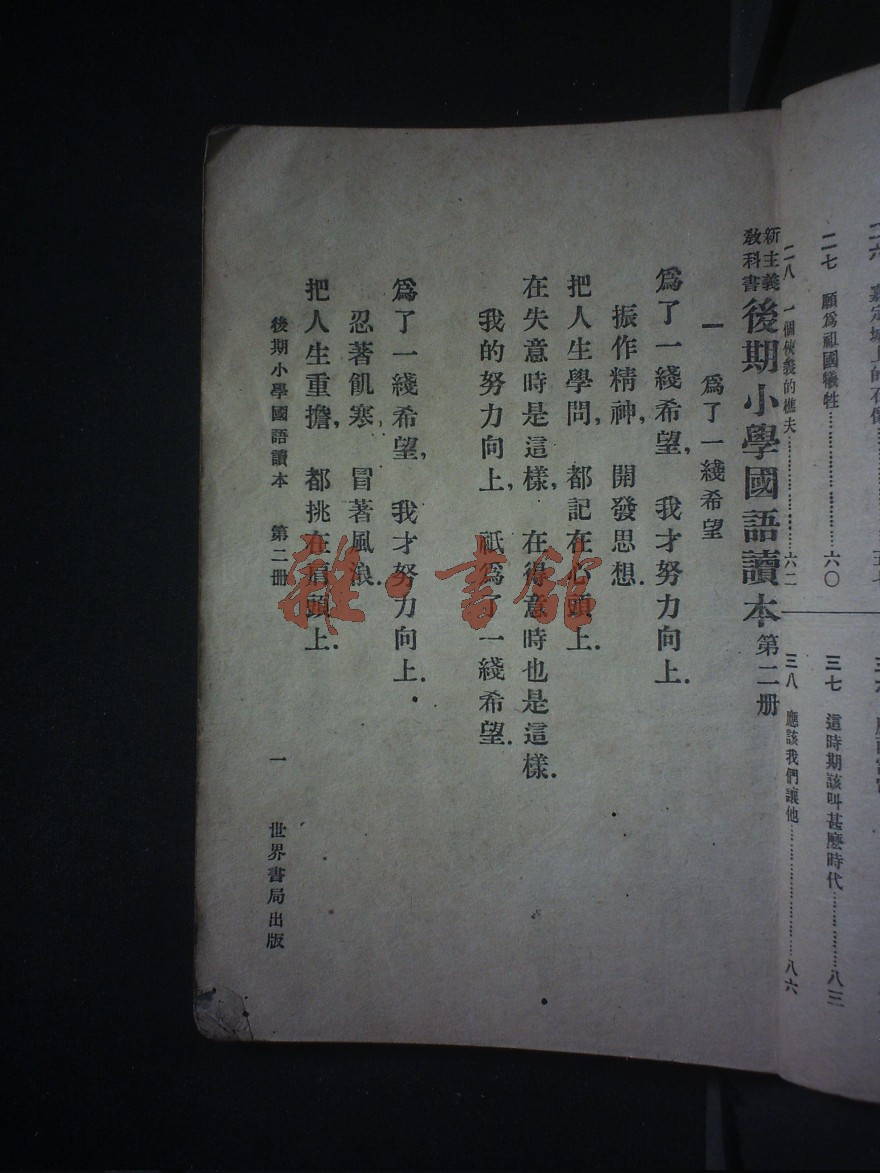 二七 願爲祖國犧牲…………………六〇
二八 一個俠義的樵夫…………………六二
三七 這時期該叫甚麼時代…………八三
三八 應該我們讓他…………………八六
新主義教科書 後期小學國語讀本 第二册
一 爲了一綫希望
爲了一綫希望，我才努力向上．
振作精神，開發思想．
把人生學問，都記在心頭上．
在失意時是這樣，在得意時也是這樣．
我的努力向上，祇爲了一綫希望．
爲了一綫希望，我才努力向上．
忍著飢寒，冒著風浪．
把人生重擔，都挑在肩頭上．
後期小學國語讀本 第二册 一 世界書局出版
雜·書館